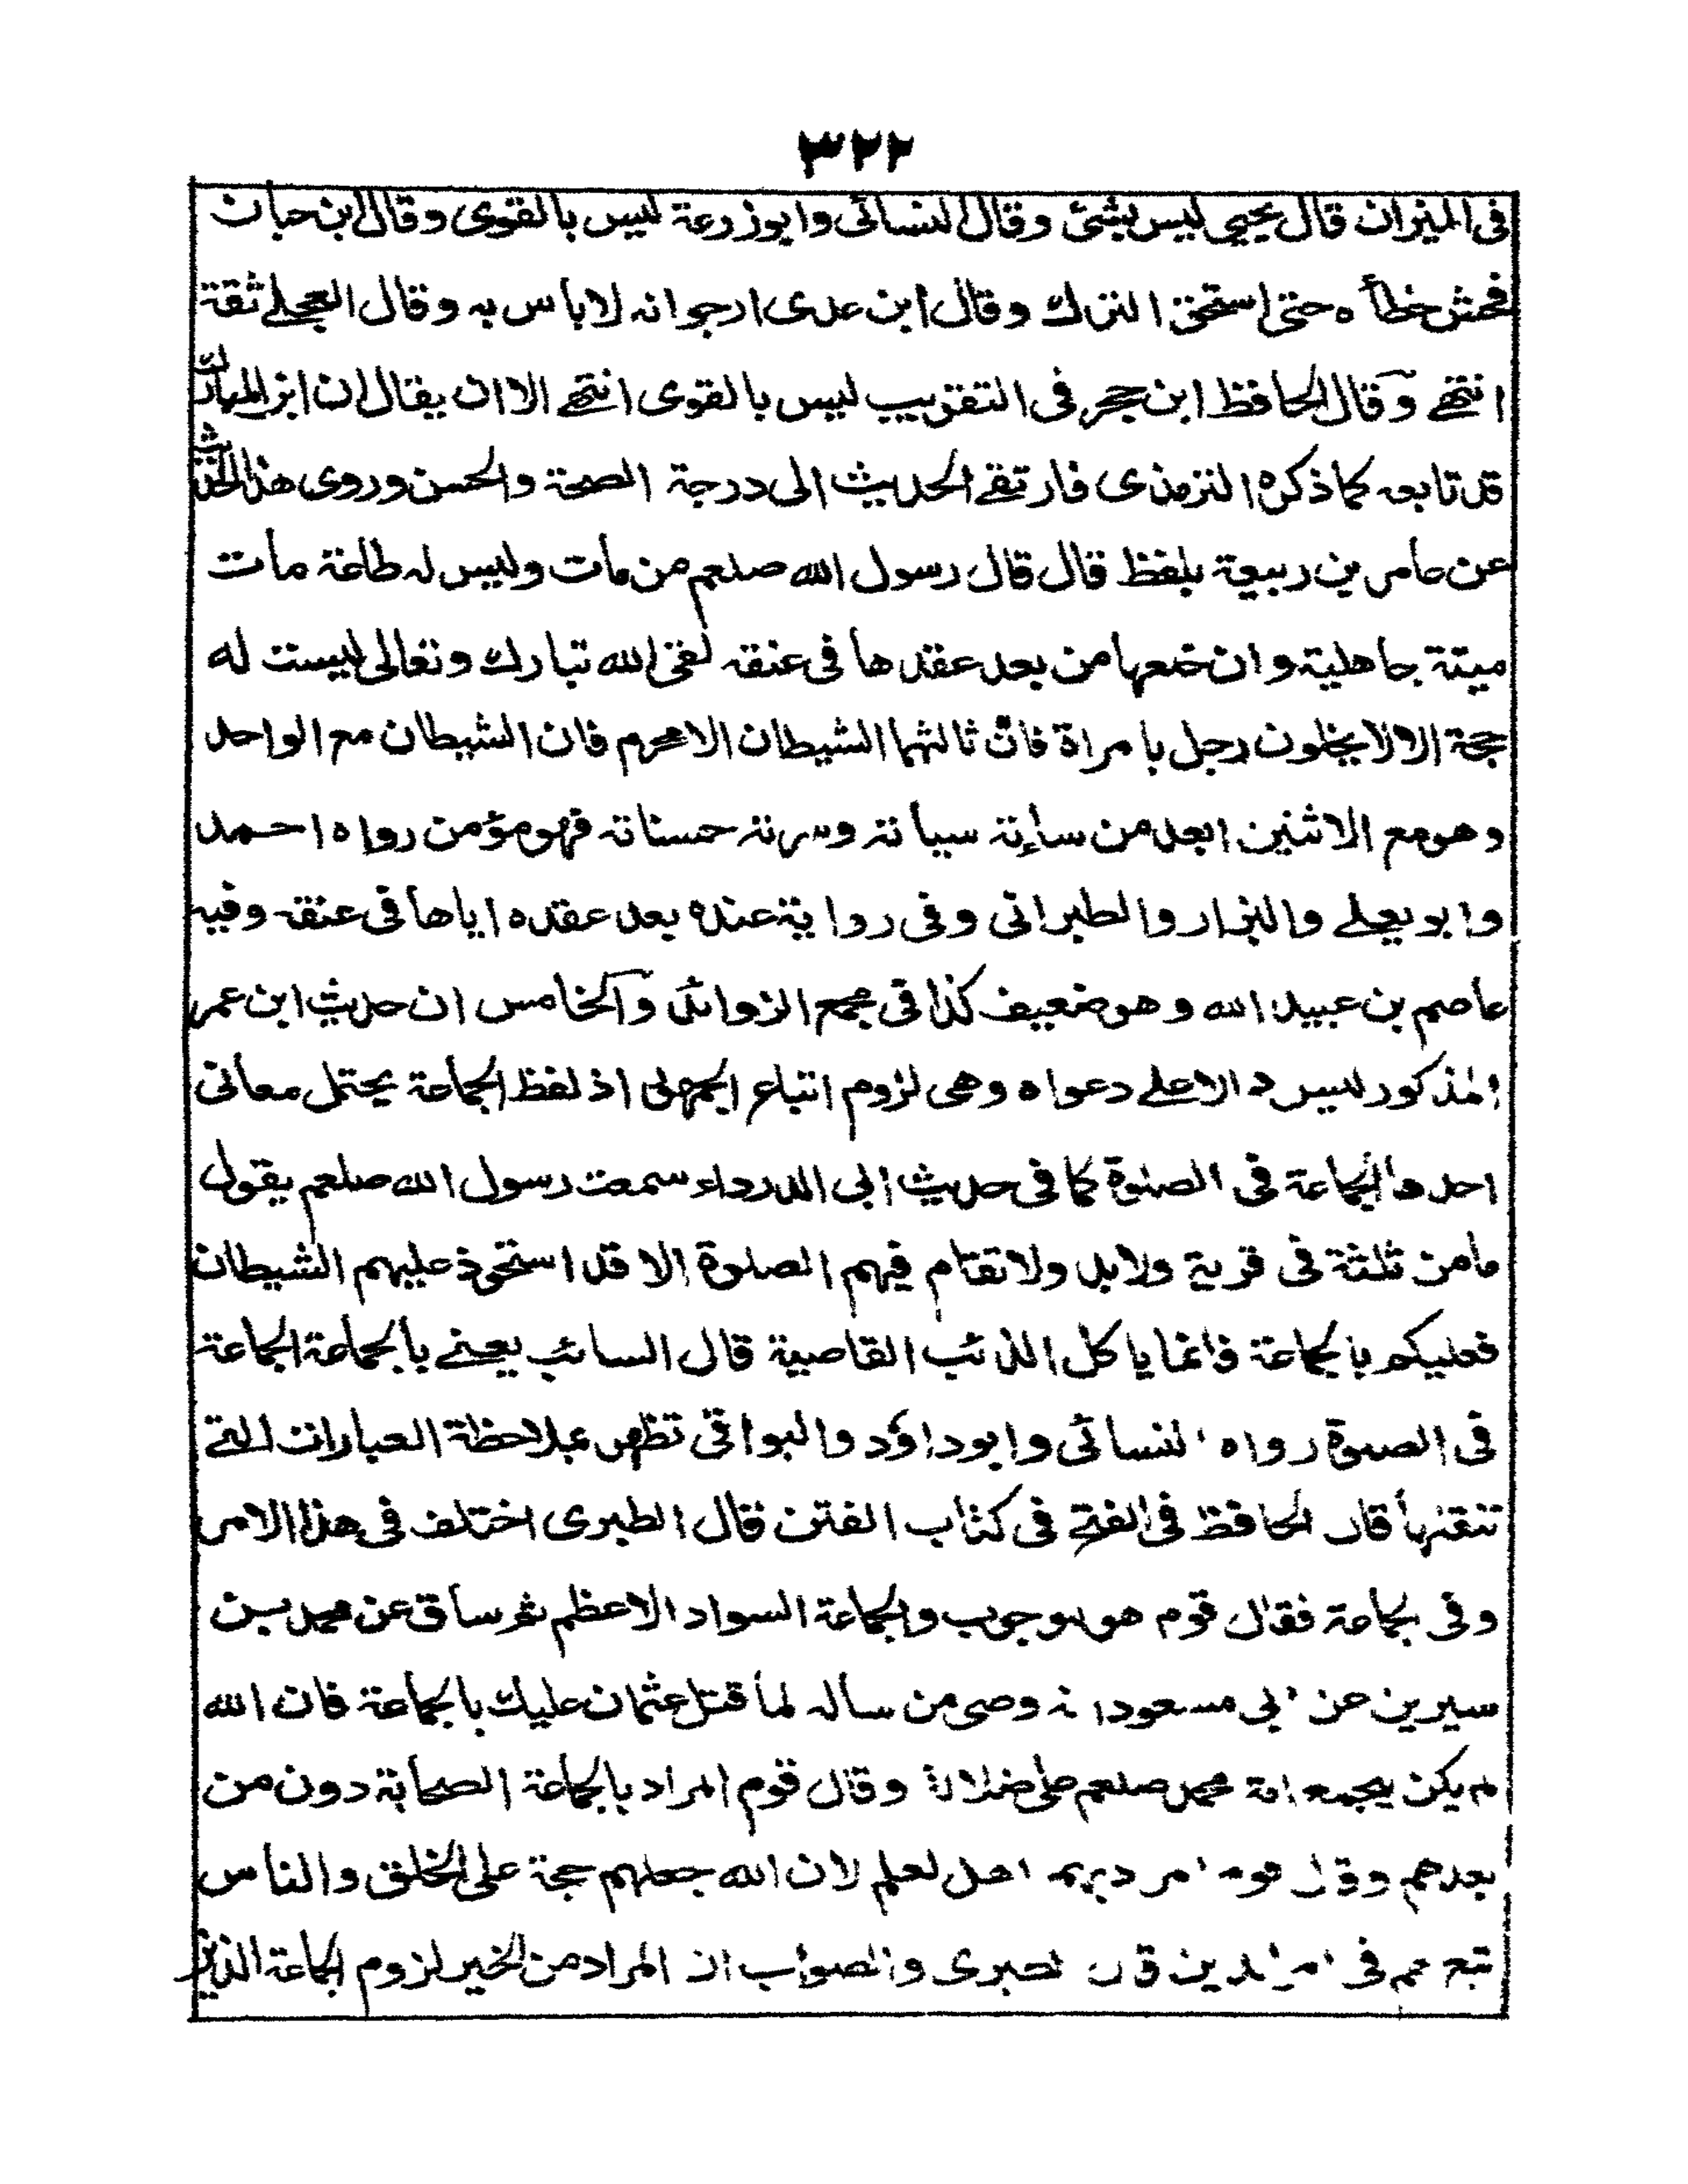 ٣٢٢
فى الميزان قال يحيى ليس بشئ وقال النسائى وابوزرعة ليس بالقوى وقال ابن حبان
فحش خطأه حتى استحق الترك وقال ابن عدى ارجوانه لاباس به وقال العجلے ثقة
انتهے وقال الحافظ ابن حجر فى التقريب ليس بالقوى انتهے الا ان يقال ان ابن المبارك
قد تابعه كما ذكره الترمذى فارتقے الحديث الى درجة الصحة والحسن وروى هذا الحديث
عن عامر بن ربيعة بلفظ قال قال رسول الله صلعم من مات وليس له طاعة مات
ميتة جاهلية وان خلعها من بعد عقدها فى عنقه لقى الله تبارك وتعالى ليست له
حجة الا لا يخلون رجل بامراة فان ثالثهما الشيطان الا محرم فان الشيطان مع الواحد
وهو مع الاثنين ابعد من ساءته سيأته وسرته حسناته فهو مؤمن رواه احمد
وابو يعلے والبزار والطبرانى وفى رواية عنده بعد عقده اياها فى عنقه وفيه
عاصم بن عبيد الله وهو ضعيف كذا فى مجمع الزوائد والخامس ان حديث ابن عمر
المذكور ليس دالا علے دعواه وهى لزوم اتباع الجمهور اذ لفظ الجماعة يحتمل معانى
احدها الجماعة فى الصلوة كما فى حديث ابى الدرداء سمعت رسول الله صلعم يقول
مامن ثلثة فى قرية ولابد ولا تقام فيهم الصلوة الا قد استحوذ عليهم الشيطان
فعليكم بالجماعة فانما ياكل الذئب القاصية قال السائب يعنے بالجماعة الجماعة
فى الصلوة رواه النسائى وابوداؤد والبواقى تظهر بملاحظة العبارات التے
ننقلها قال الحافظ فى الفتح فى كتاب الفتن قال الطبرى اختلف فى هذا الامر
وفى الجماعة فقال قوم هو للوجوب والجماعة السواد الاعظم ثم ساق عن محمد بن
سيرين عن ابى مسعود انه وصى من ساله لما قتل عثمان عليك بالجماعة فان الله
لم يكن ليجمع امة محمد صلعم على ضلالة وقال قوم المراد بالجماعة الصحابة دون من
بعدهم وقال قوم المراد بهم اهل العلم لان الله جعلهم حجة على الخلق والناس
تبع لهم فى امر الدين قال الطبرى والصواب ان المراد من الخير لزوم الجماعة الذين